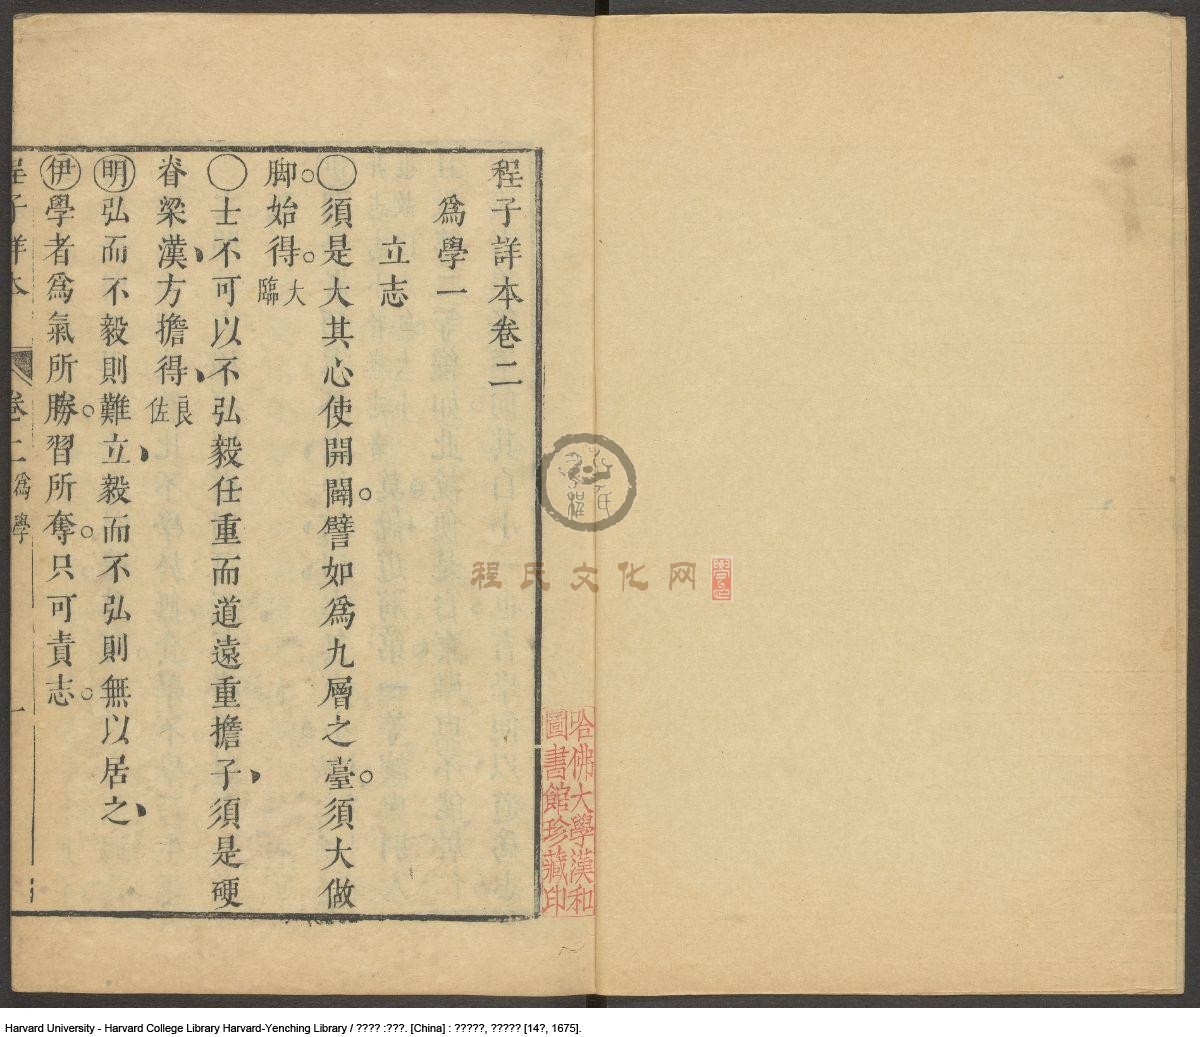 程子詳本卷二
爲學一
立志
〇須是大其心使開闊譬如爲九層之臺須大做
脚始得大臨
〇士不可以不弘毅任重而道遠重擔子須是硬
脊梁漢方擔得良佐
明弘而不毅則難立毅而不弘則無以居之
伊學者爲氣所勝習所奪只可責志
程子詳本 卷二 爲學 一
哈佛大學漢和
圖書館珍藏印
程氏文化网
Harvard University - Harvard College Library Harvard-Yenching Library / ???? :???. [China] : ?????, ????? [14?, 1675].